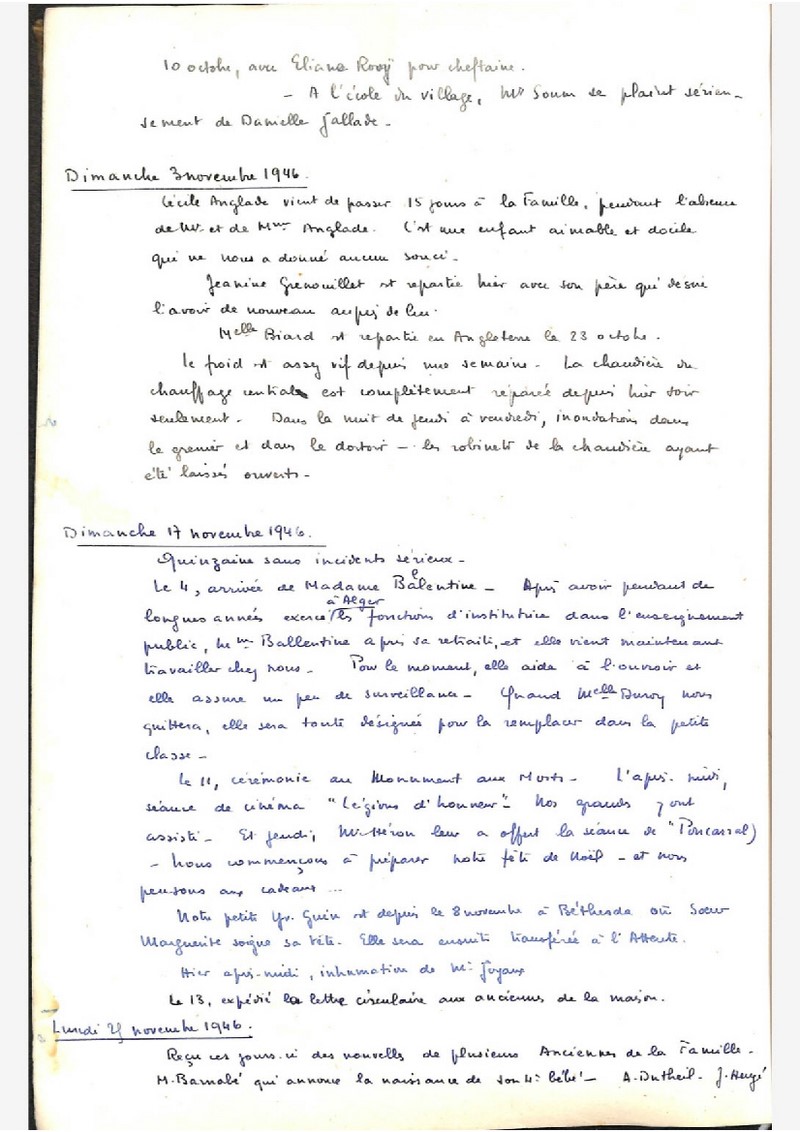 10 octobre, avec Eliane Rooÿ pour cheftaine.
- A l'école du village, Mr Soum se plaint sérieu-
sement de Danielle Jallade -
Dimanche 3 novembre 1946.
Cécile Anglade vient de passer 15 jours à la Famille, pendant l'absence
de Mr et de Mme Anglade. C'est une enfant aimable et docile
qui ne nous a donné aucun souci -
Jeanine Grenouillet est repartie hier avec son père qui désire
l'avoir de nouveau auprès de lui.
Melle Biard est repartie en Angleterre le 23 octobre.
Le froid est assez vif depuis une semaine - La chaudière du
chauffage central est complètement réparée depuis hier soir
seulement - Dans la nuit de jeudi à vendredi, inondations dans
le grenier et dans le dortoir - les robinets de la chaudière ayant
été laissés ouverts -
Dimanche 17 novembre 1946.
Quinzaine sans incidents sérieux -
Le 4, arrivée de Madame Balentine - Après avoir pendant de
longues années exercé à Alger les fonctions d'institutrice dans l'enseignement
public, Mme Ballentine a pris sa retraite, et elle vient maintenant
travailler chez nous - Pour le moment, elle aide à l'ouvroir et
elle assure un peu de surveillance - Quand Melle Duroy nous
quittera, elle sera toute désignée pour la remplacer dans la petite
classe -
Le 11, cérémonie au Monument aux Morts - L'après-midi,
séance de cinéma "Légions d'honneur" - Nos grands y ont
assisté - Et jeudi, Mr Héron leur a offert la séance de "Poncarral)
- Nous commençons à préparer notre fête de Noël - et nous
pensons aux cadeaux ...
Notre petite Yv. Guin est depuis le 8 novembre à Béthesda où Sœur
Marguerite soigne sa tête - Elle sera ensuite transférée à l'Attente.
Hier après-midi, inhumation de Mr Joyaux
Le 13, expédié la lettre circulaire aux anciennes de la maison.
Lundi 25 novembre 1946.
Reçu ces jours-ci des nouvelles de plusieurs Anciennes de la Famille -
M. Barnabé qui annonce la naissance de son 4e bébé - A. Dutheil - J. Hergé